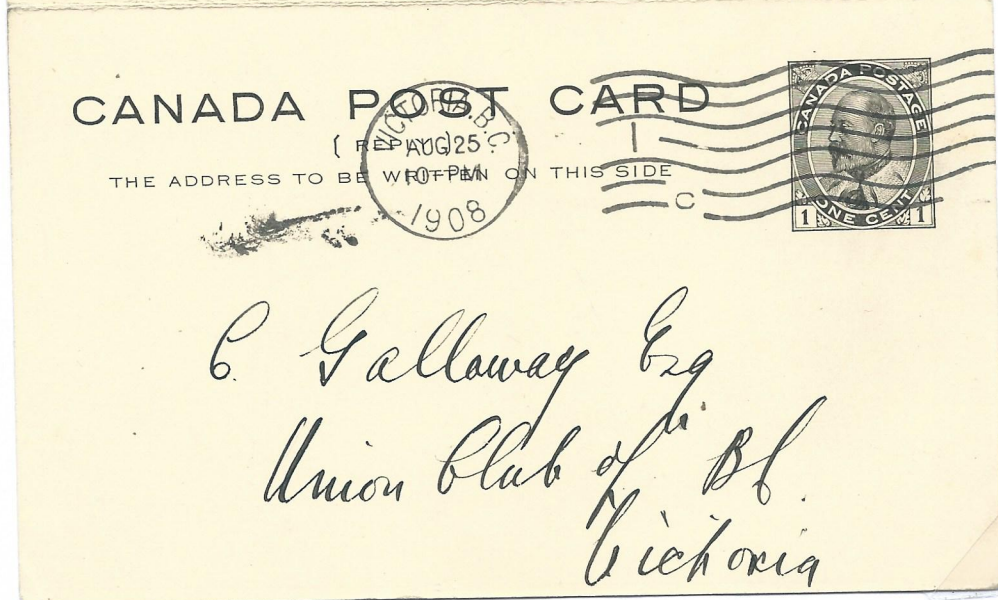 CANADA POST CARD
( REPLY )
THE ADDRESS TO BE WRITTEN ON THIS SIDE
VICTORIA. B.C.
AUG 25
10-PM
1908
1
C
CANADA POSTAGE
ONE CENT
1 1
C. Galloway Esq
Union Club of BC.
Victoria